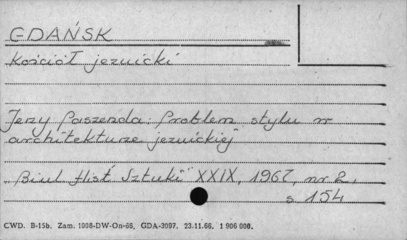 GDAŃSK
Kościół jezuicki
Jerzy Paszenda: Problem stylu w
architekturze jezuickiej
"Biul Hist Sztuki" XXIX, 1967, nr 2,
s 154
CWD. B-15b. Zam. 1008-DW-On-66. GDA-3097. 23.11.66. 1 906 000.